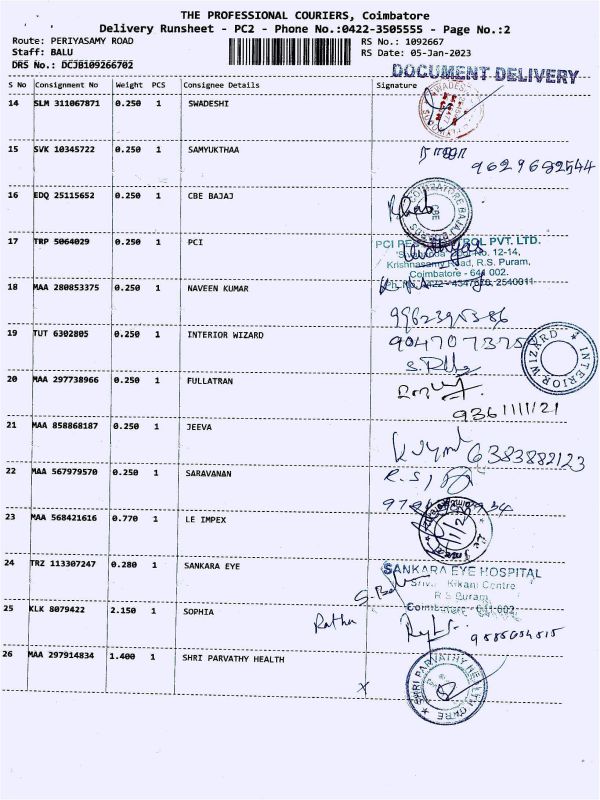 THE PROFESSIONAL COURIERS, Coimbatore
Delivery Runsheet - PC2 - Phone No.:0422-3505555 - Page No.:2
Route: PERIYASAMY ROAD
Staff: BALU
DRS No.: DCJB109266702
RS No.: 1092667
RS Date: 05-Jan-2023
DOCUMENT DELIVERY
S No Consignment No Weight PCS Consignee Details Signature
14 SLM 311067871 0.250 1 SWADESHI
15 SVK 10345722 0.250 1 SAMYUKTHAA
9629682544
16 EDQ 25115652 0.250 1 CBE BAJAJ
COIMBATORE BAJAJ
CBE
17 TRP 5064029 0.250 1 PCI
PCI PEST CONTROL PVT. LTD.
No. 12-14,
Krishnasamy Road, R.S. Puram,
Coimbatore - 641 002.
Ph. No. 0422 - 4347620, 2540011
18 MAA 280853375 0.250 1 NAVEEN KUMAR
19 TUT 6302805 0.250 1 INTERIOR WIZARD
904707375
INTERIOR WIZARD
20 MAA 297738966 0.250 1 FULLATRAN
9361111121
21 MAA 858868187 0.250 1 JEEVA
6383888123
22 MAA 567979570 0.250 1 SARAVANAN
23 MAA 568421616 0.770 1 LE IMPEX
24 TRZ 113307247 0.280 1 SANKARA EYE
SANKARA EYE HOSPITAL
Kikani Centre
R S Puram
Coimbatore - 641 002
25 KLK 8079422 2.150 1 SOPHIA
26 MAA 297914834 1.400 1 SHRI PARVATHY HEALTH
X
SHRI PARVATHY HEALTH CARE